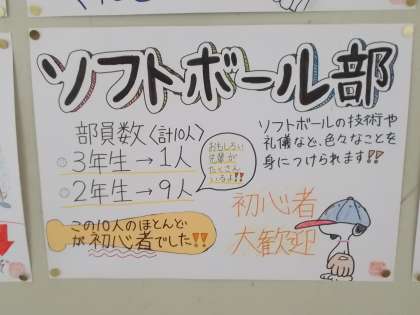 ソフトボール部
部員数〈計10人〉
◦3年生→1人
◦2年生→9人
おもしろい
先輩が
たくさん
いるよ!!
この10人のほとんど
が初心者でした!!
ソフトボールの技術や
礼儀など、色々なことを
身につけられます!!
初心者
大歓迎